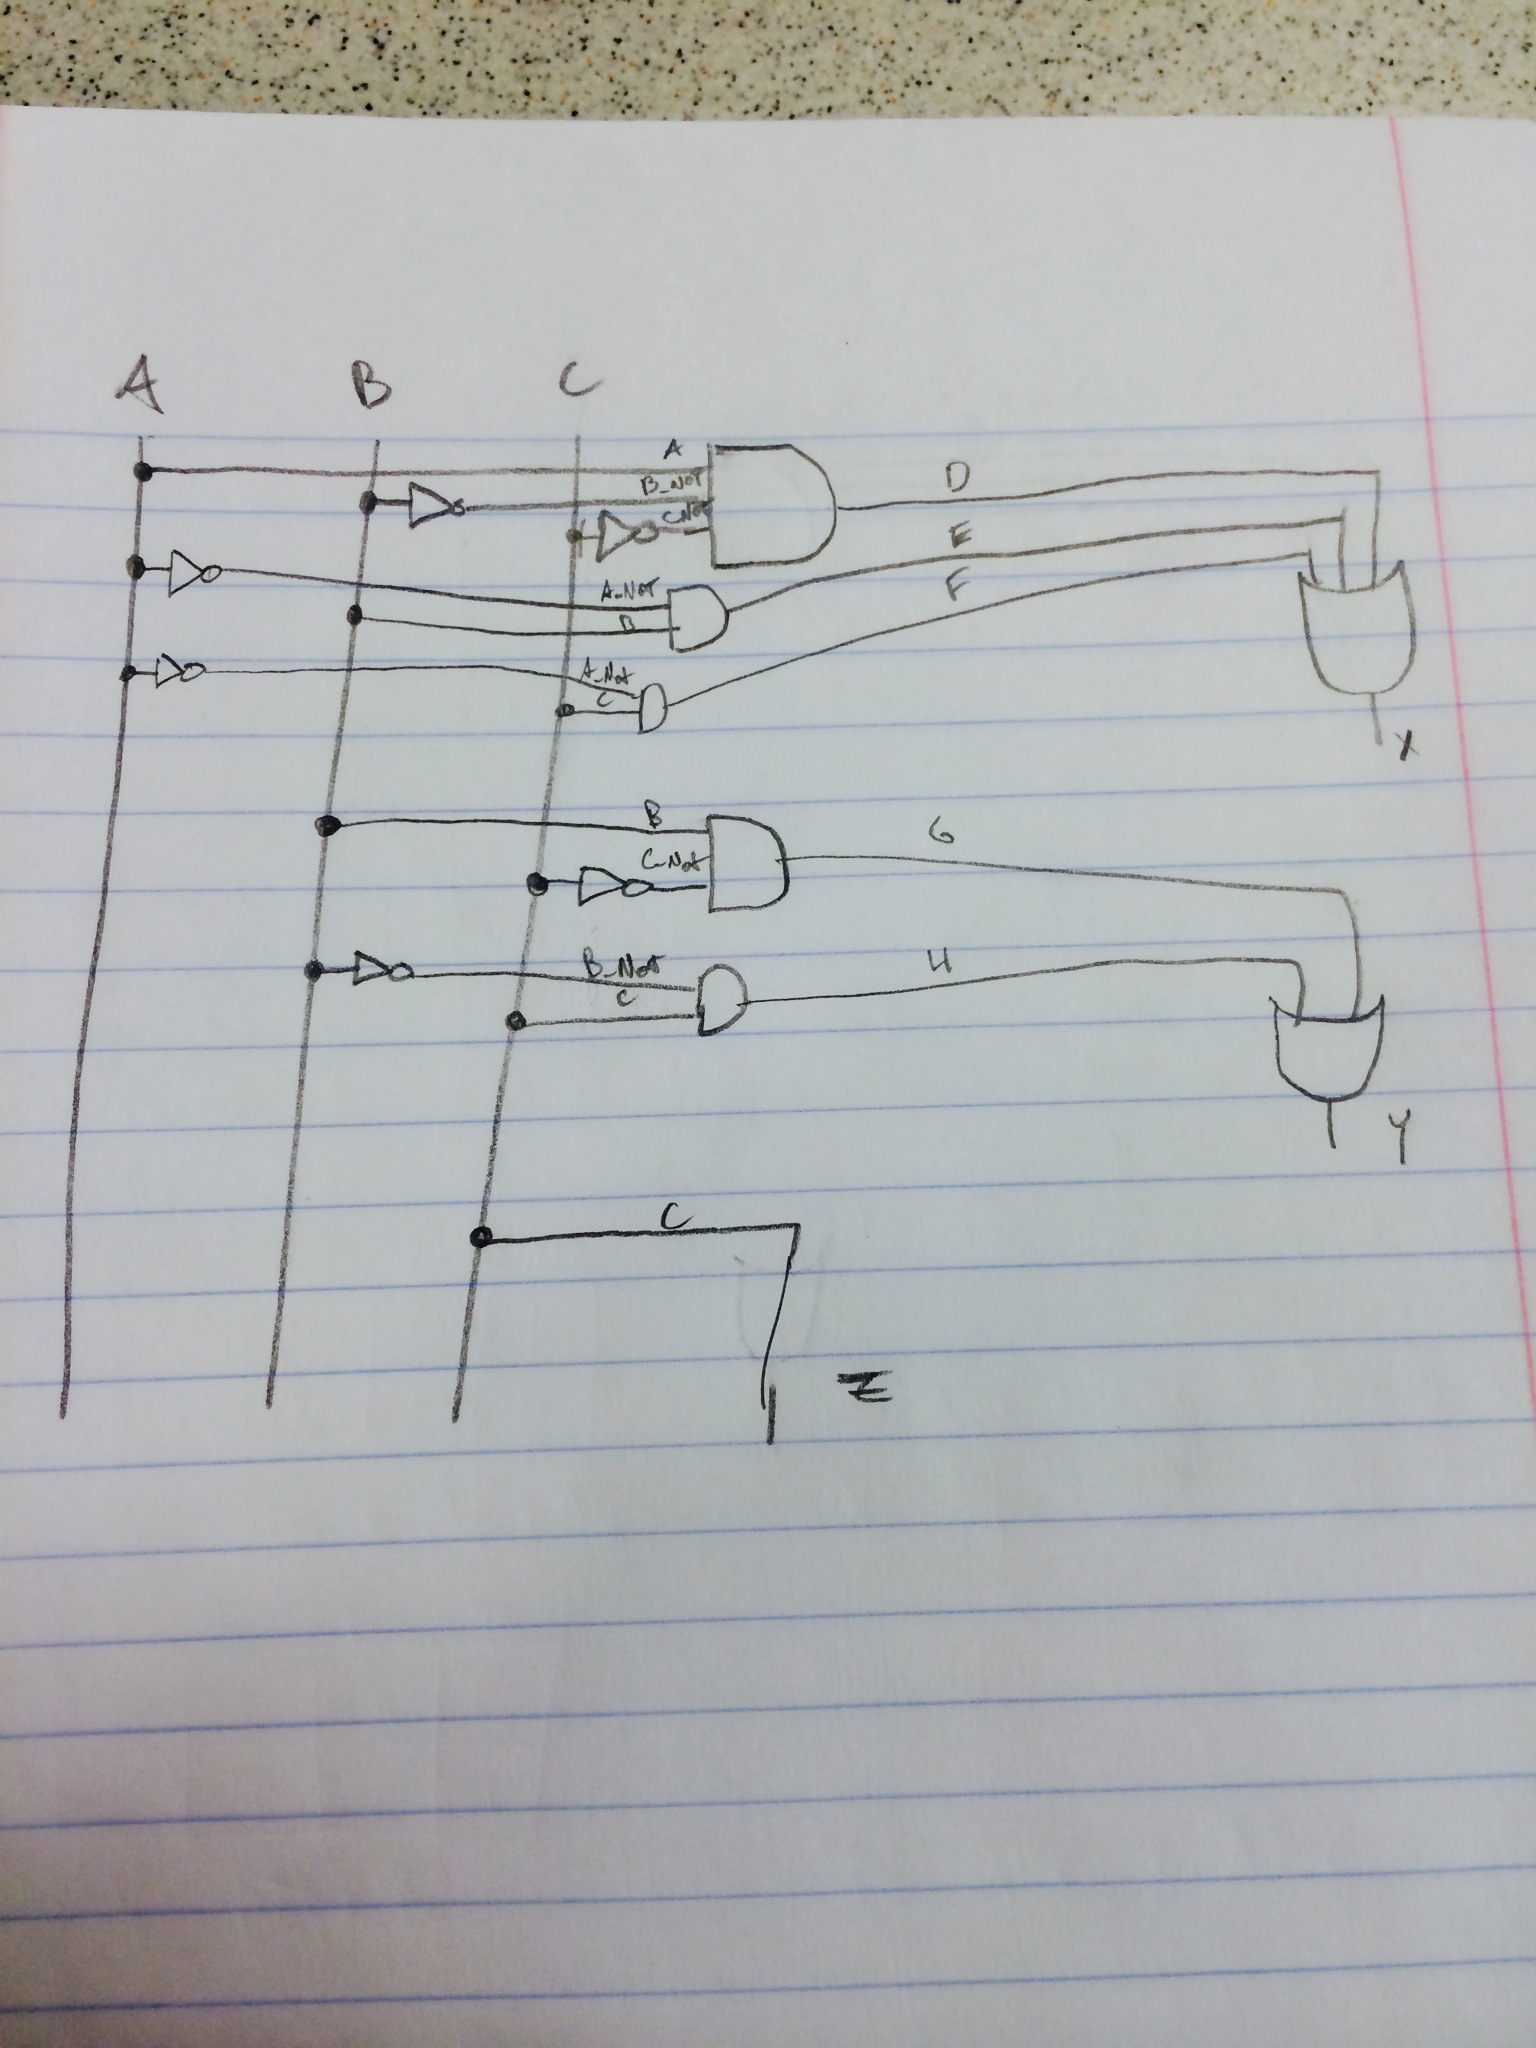 A B C
A
B_NOT
C_NOT
D
E
F
A_NOT
B
A_Not
C
X
B
C_Not
G
B_Not
C
H
Y
C
Z